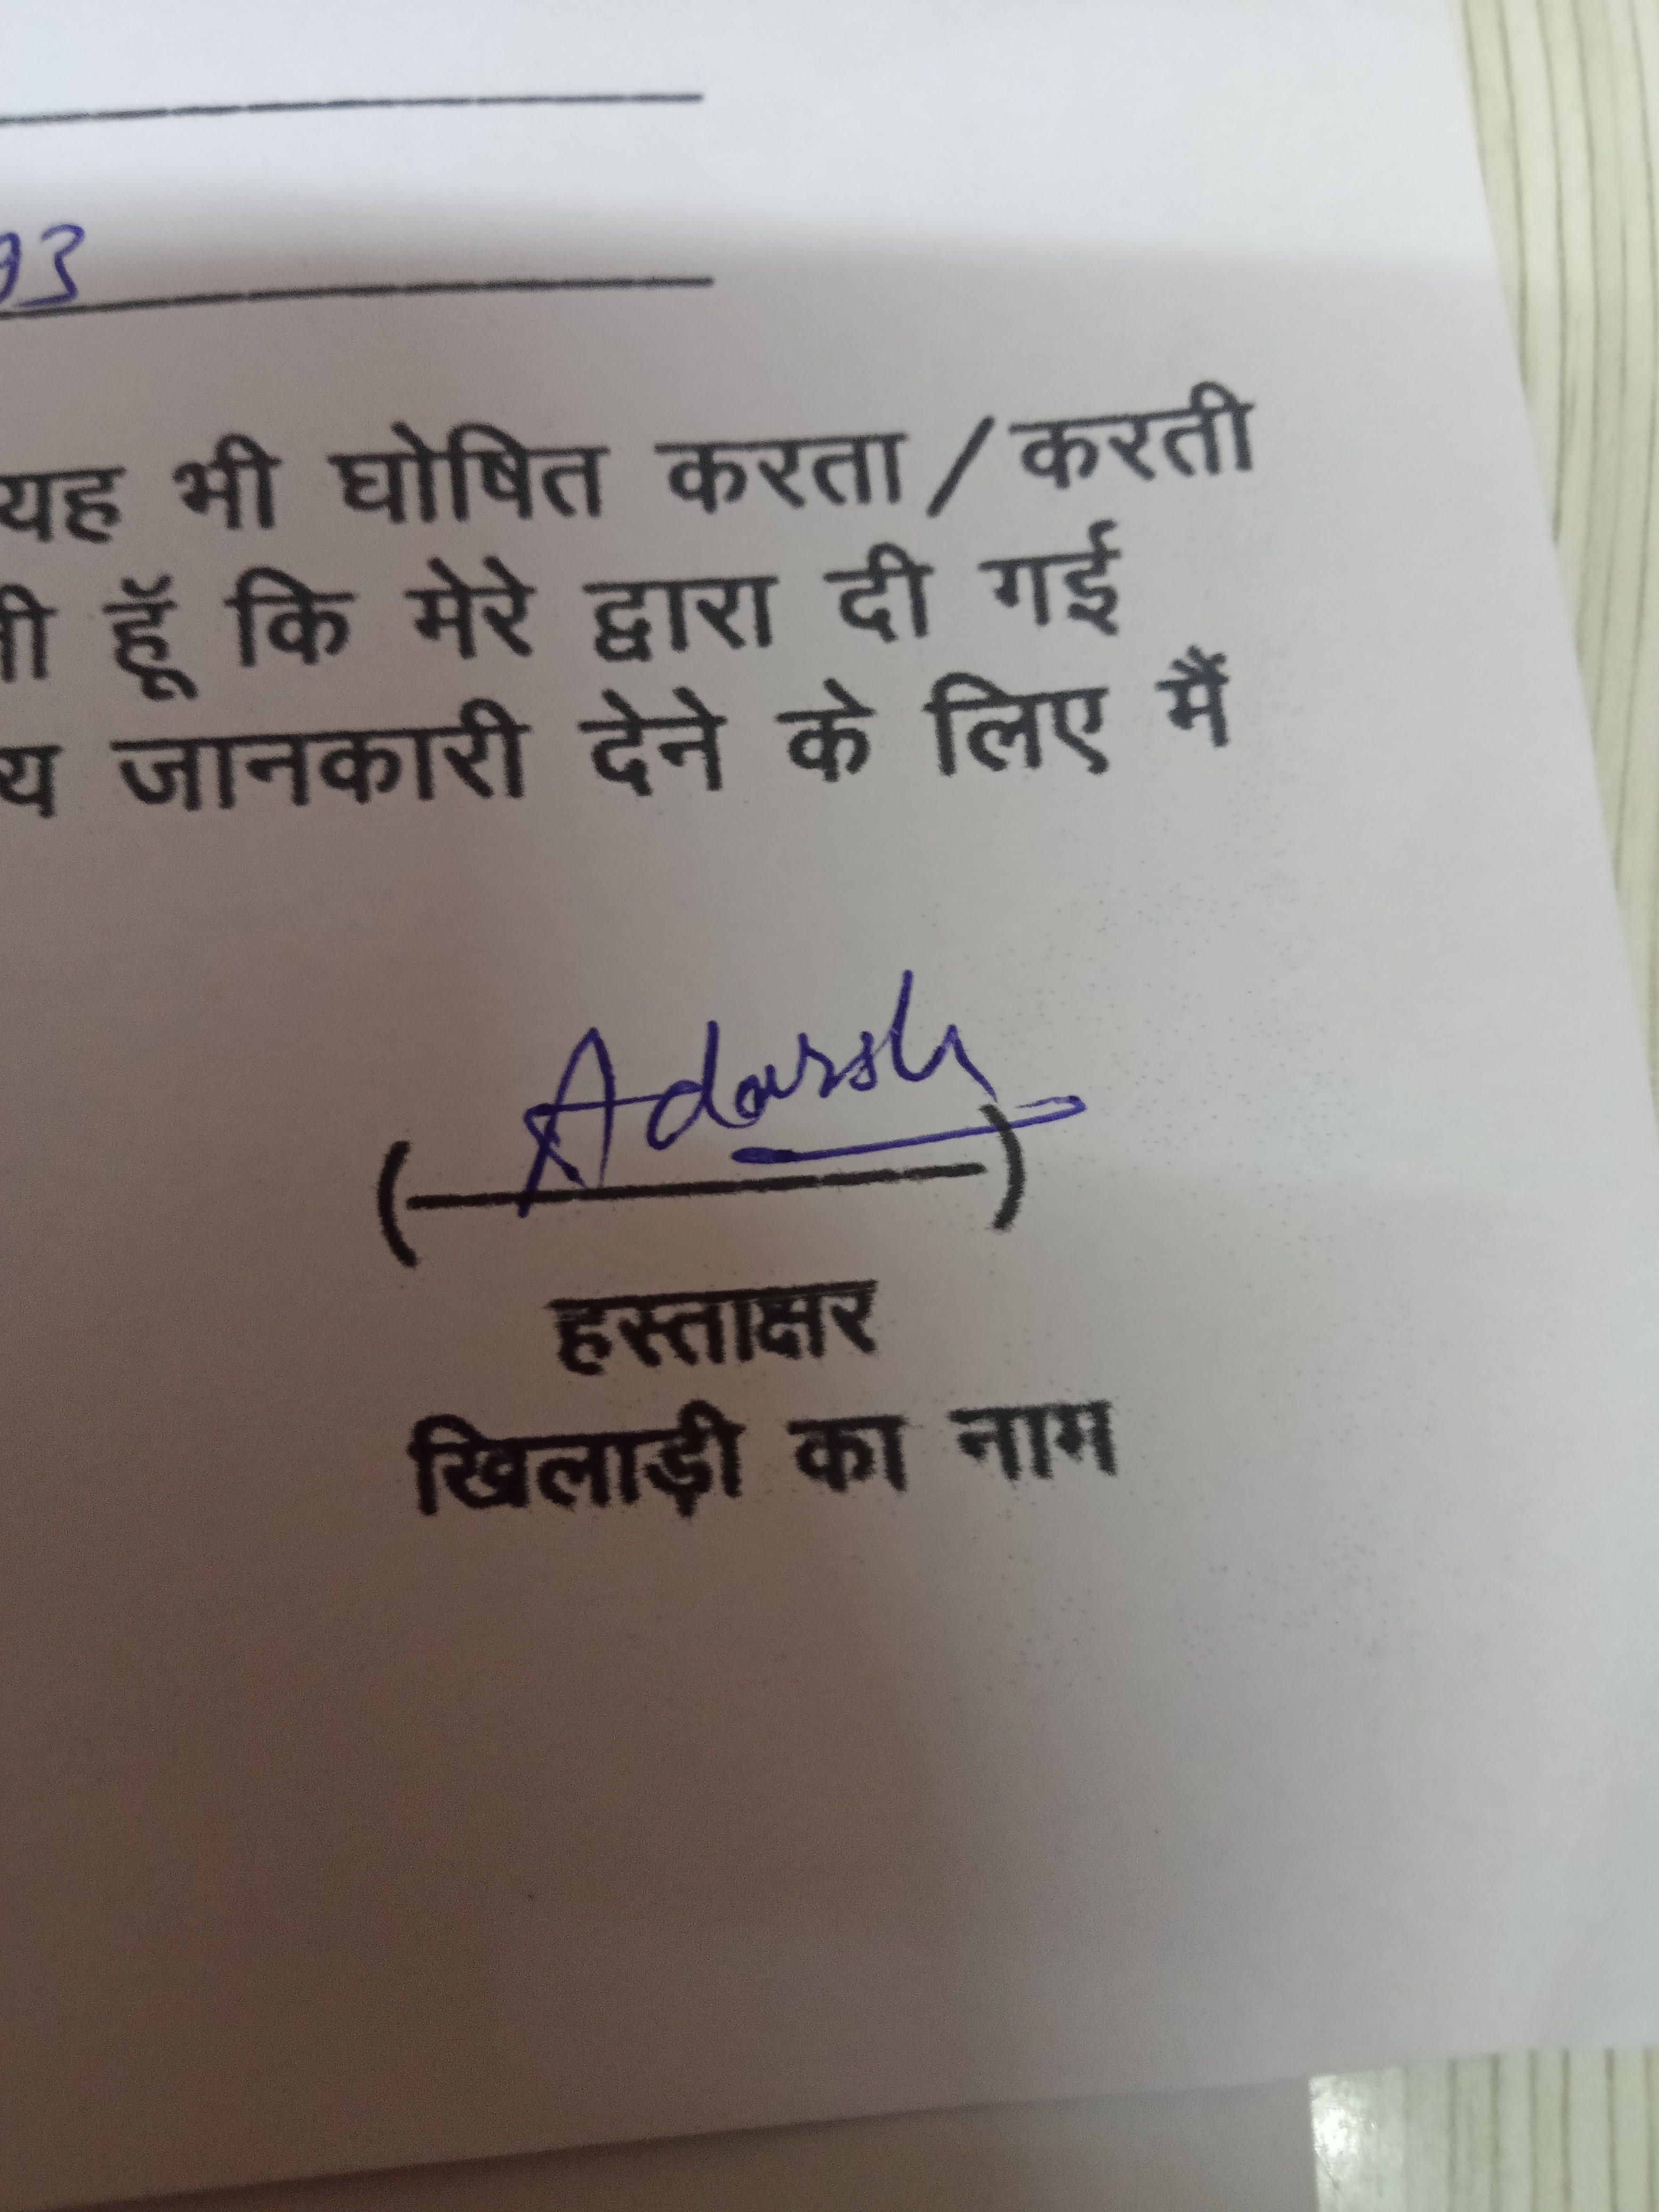 93
यह भी घोषित करता/करती
हूॅ कि मेरे द्वारा दी गई
जानकारी देने के लिए मैं
Adarsh
(________)
हस्ताक्षर
खिलाड़ी का नाम